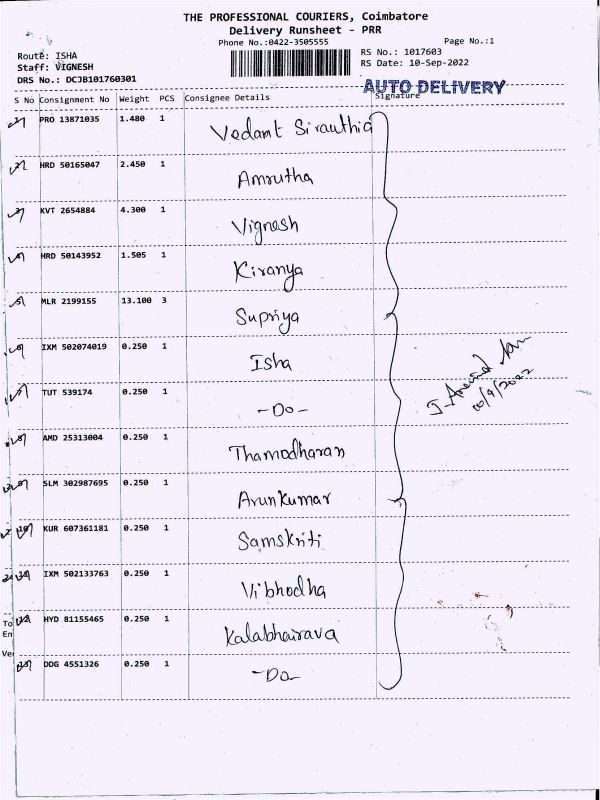 THE PROFESSIONAL COURIERS, Coimbatore
Delivery Runsheet - PRR
Phone No.:0422-3505555
Page No.:1
Route: ISHA
RS No.: 1017603
Staff: VIGNESH
RS Date: 10-Sep-2022
DRS No.: DCJB101760301
AUTO DELIVERY
S No Consignment No Weight PCS Consignee Details Signature
PRO 13871035 1.480 1 Vedant Sirauthia
HRD 50165047 2.450 1 Amrutha
KVT 2654884 4.300 1 Vignesh
HRD 50143952 1.505 1 Kiranya
MLR 2199155 13.100 3 Supriya
IXM 502074019 0.250 1 Isha
TUT 539174 0.250 1 -Do-
AMD 25313004 0.250 1 Thamodharan
SLM 302987695 0.250 1 Arunkumar
10 KUR 607361181 0.250 1 Samskriti
IXM 502133763 0.250 1 Vibhodha
12 HYD 81155465 0.250 1 Kalabhairava
DDG 4551326 0.250 1 -Do-
To
En
Ver